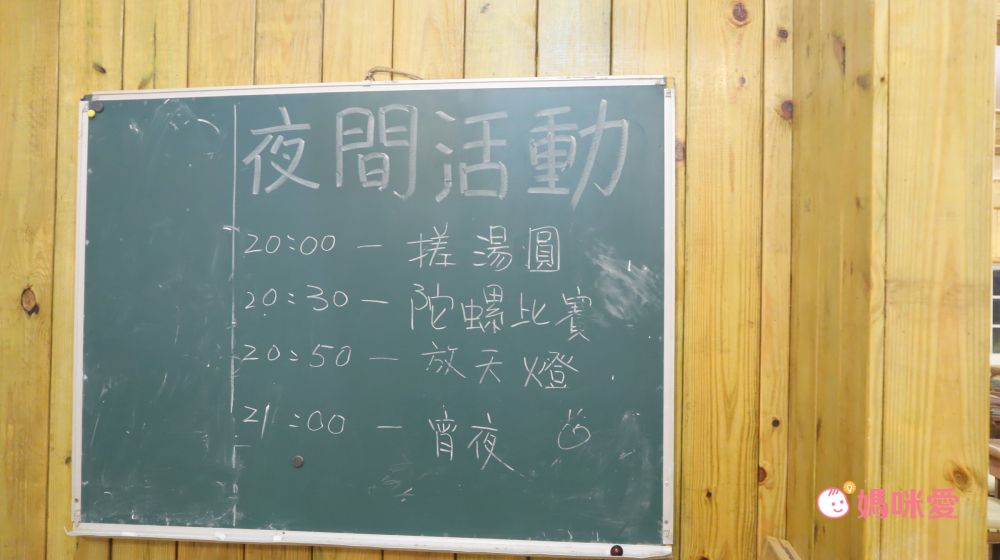 夜間活動
20:00 － 搓湯圓
20:30 － 陀螺比賽
20:50 － 放天燈
21:00 － 宵夜
媽咪愛